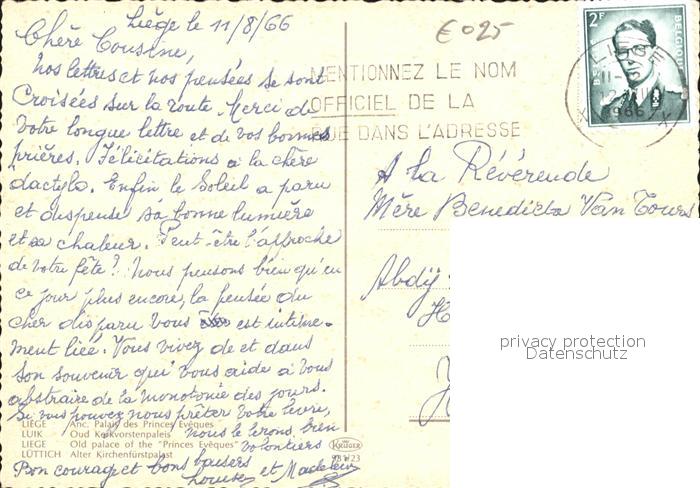 Liège et 11/8/66
Chère Cousine,
Nos lettres et nos pensées se sont
Croisées sur la route. Merci de
Votre longue lettre et de vos bonnes
prières. Félicitations a la chère
dactylo. Enfin le Soleil a paru
et dispense sa bonne lumière
et sa chaleur. Peut-être l'approche
de votre fête? Nous pensons bien qu'en
ce jour plus encore, la pensée du
cher disparu vous est intime-
ment liée. Vous vivez de et dans
son souvenir qui vous aide a vous
abstraire de la monotonie des jours.
Si vous pouvez nous prêter votre livre,
nous le lirons bien
volontiers
Bon courage et bons baisers
Louise et Madeleine
LIÈGE Anc. Palais des Princes Evêques
LUIK Oud Kerkvorstenpaleis
LIEGE Old palace of the "Princes Evêques"
LÜTTICH Alter Kirchenfürstpalast
KRÜGER
€ 025
MENTIONNEZ LE NOM
OFFICIEL DE LA
RUE DANS L'ADRESSE
2F
BELGIQUE
1966
A la Révérende
Mère Benedicta Van Tours
Abdij
privacy protection
Datenschutz